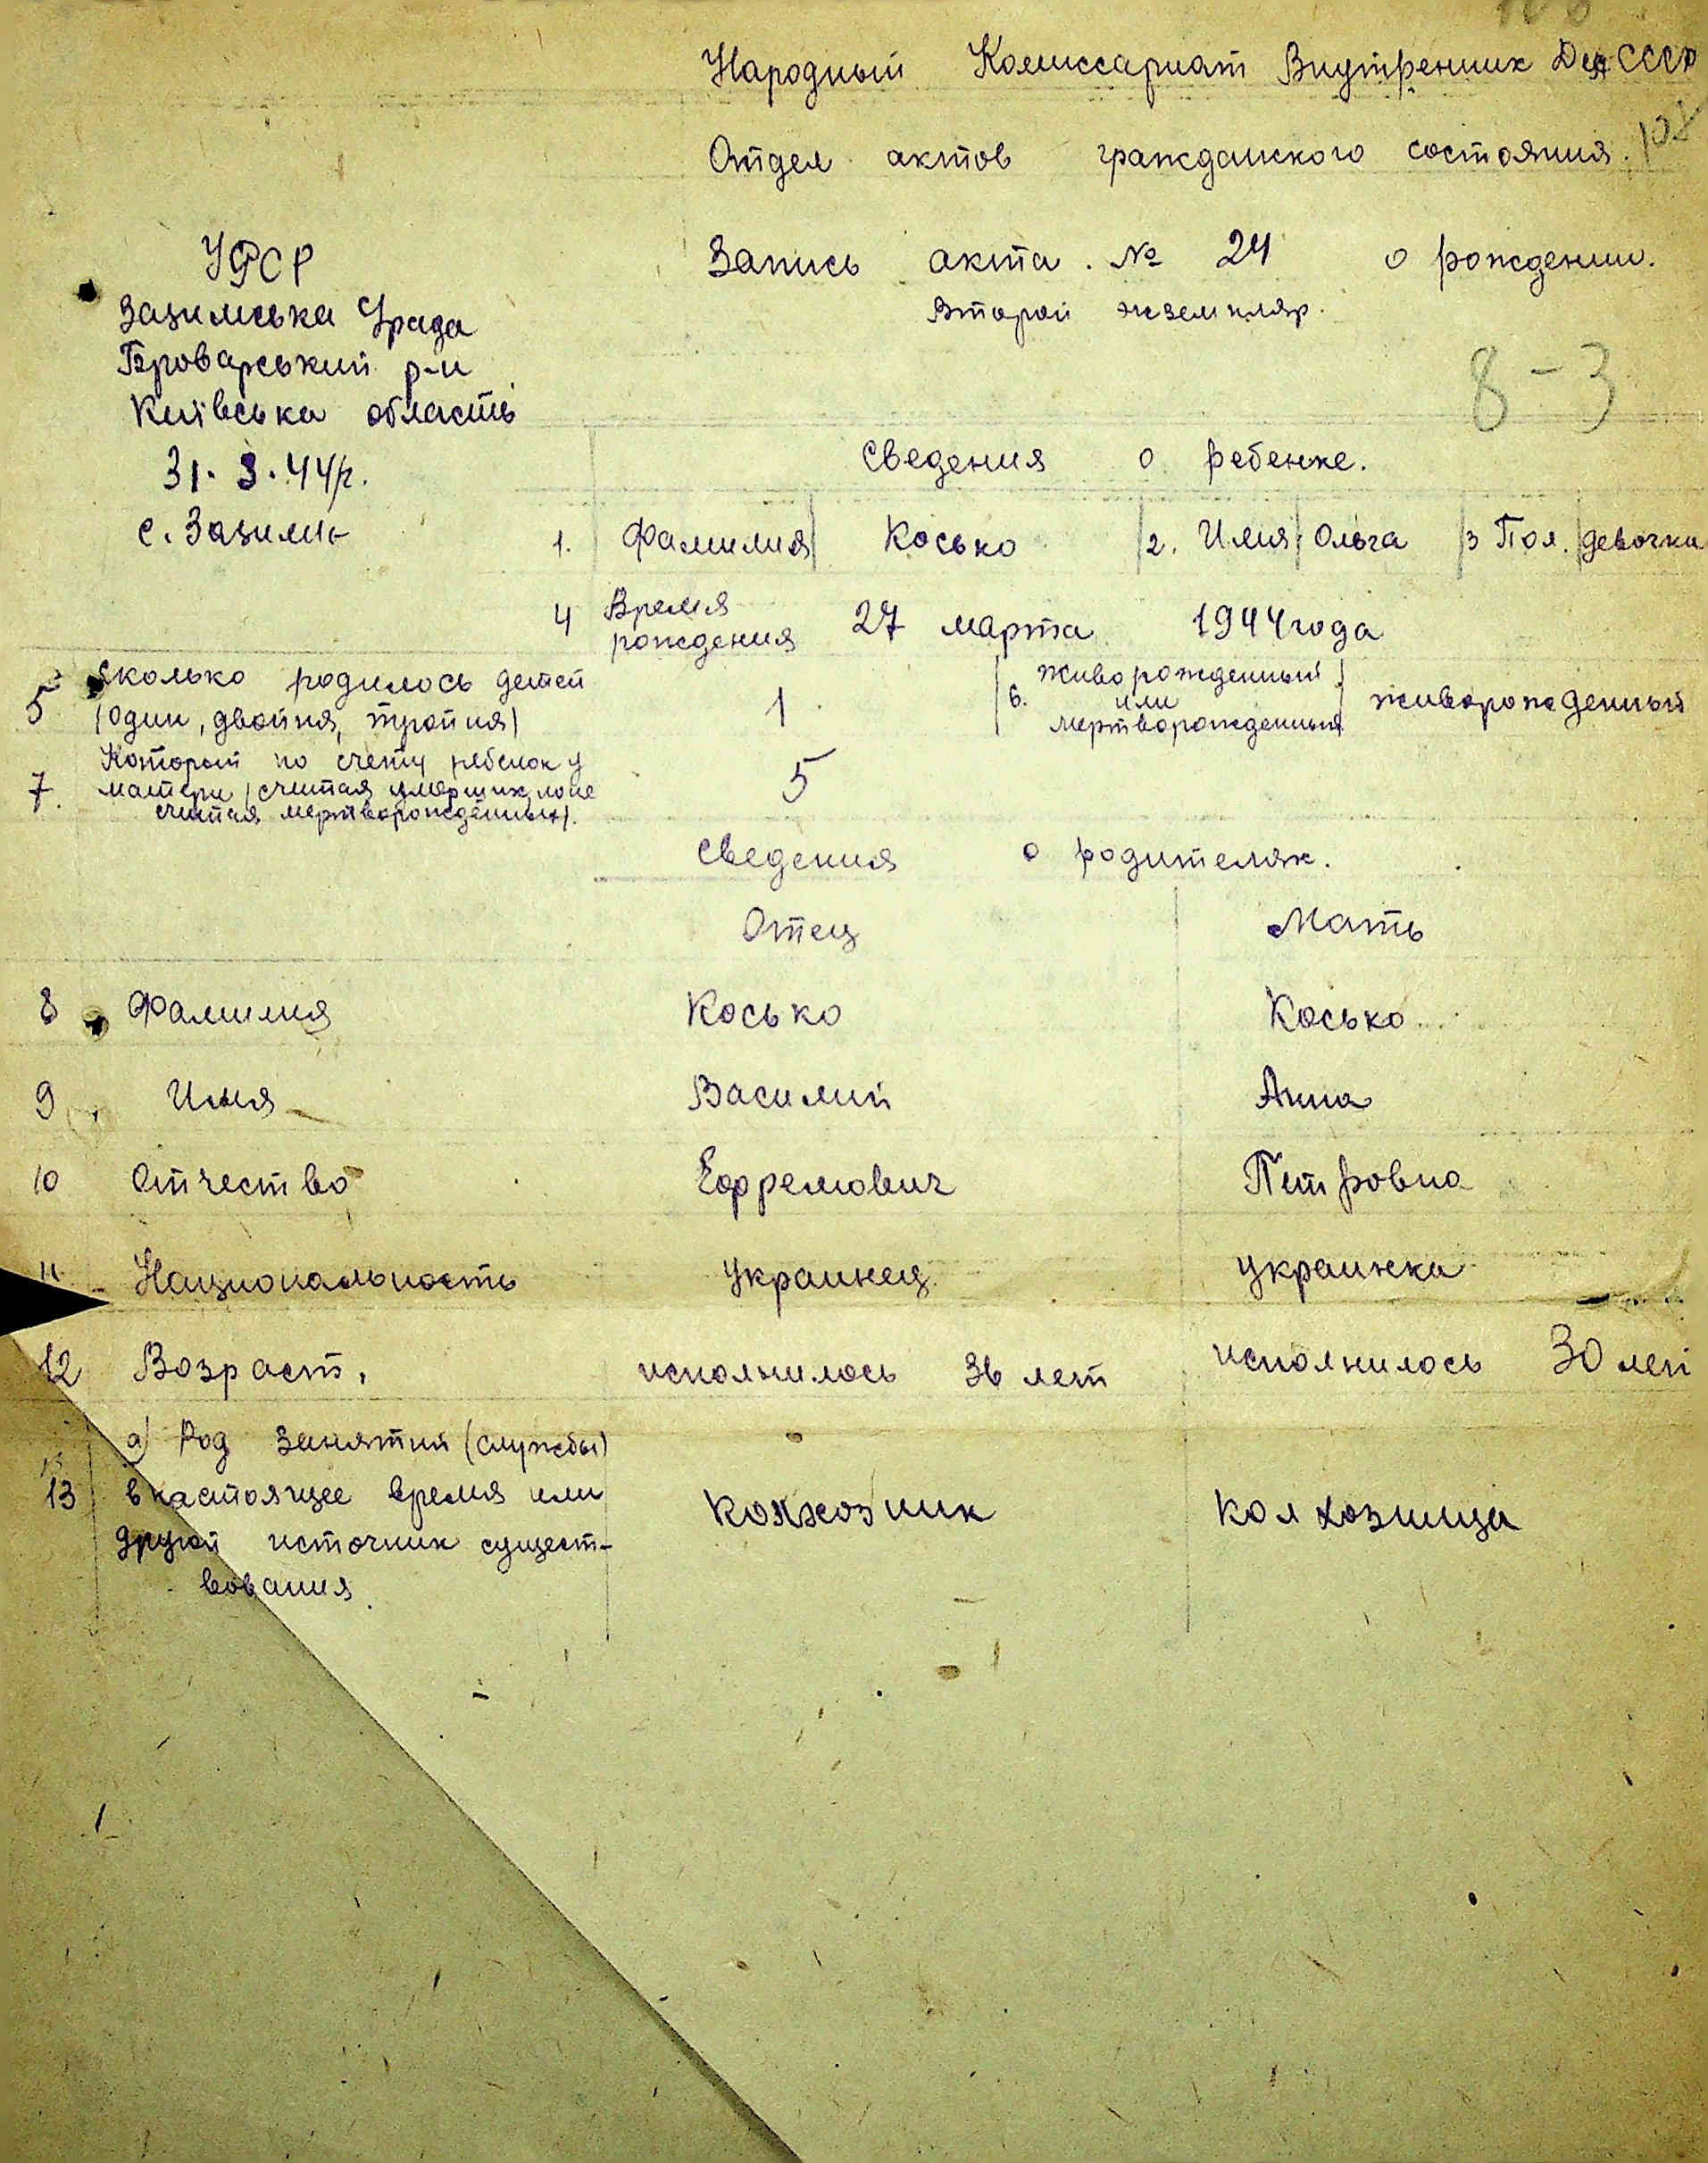 Народный Комиссариат Внутренних Дел СССР
Отдел актов гражданского состояния. 108
Запись акта. № 24 о рождении.
Второй экземпляр.
8-3
УРСР
Зазимська С/рада
Броварський р-н
Київська область
31. 3. 44 р.
с. Зазим'є
Сведения о ребенке.
1. Фамилия Косько 2. Имя Ольга 3 Пол. девочка
4 Время рождения 27 марта 1944 года
5 Сколько родилось детей
(один, двойня, тройня) 1
6. живорожденный
или
мертворожденный живорожденный
7. Который по счету ребенок у
матери (считая умерших, но не
считая мертворожденных). 5
Сведения о родителях.
Отец Мать
8 Фамилия Косько Косько
9 Имя Василий Анна
10 Отчество Ефремович Петровна
11 Национальность украинец украинка
12 Возраст. исполнилось 36 лет исполнилось 30 лет
13 а) Род занятий (службы)
в настоящее время или
другой источник сущест-
вования.
колхозник колхозница